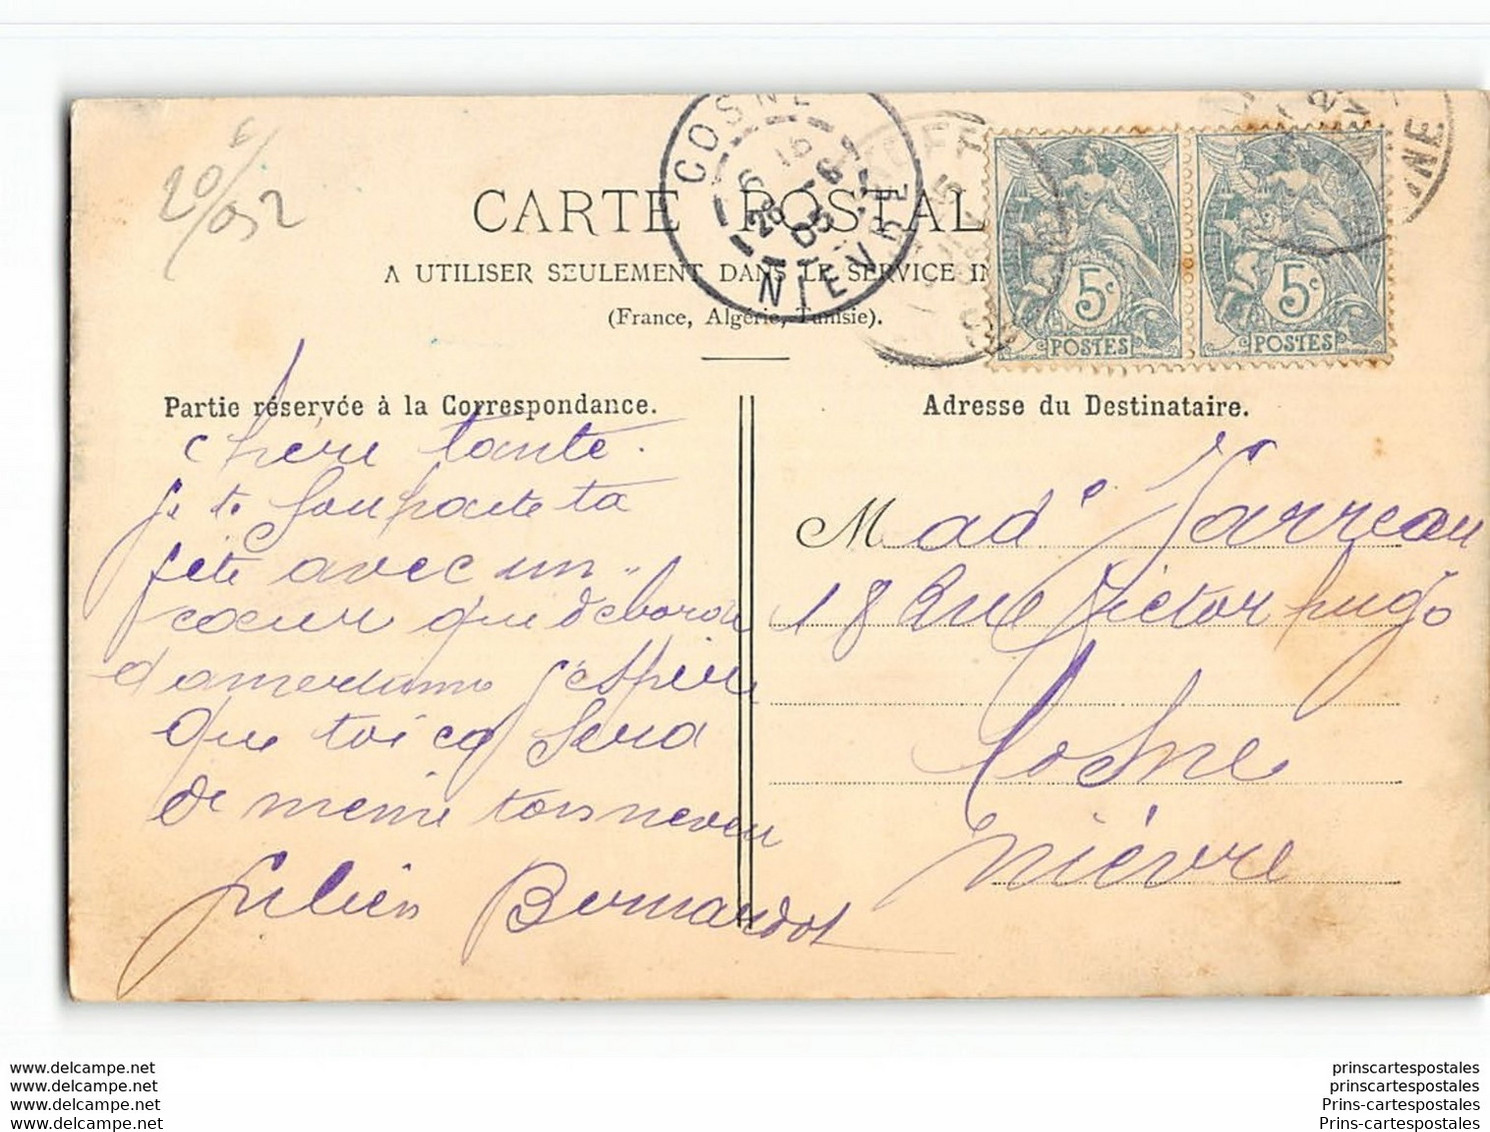 20/6
/052
COSNE
6 15
26 -6
05
NIEVRE
CARTE POSTAL
A UTILISER SEULEMENT DANS LE SERVICE IN
(France, Algérie, Tunisie).
5c
POSTES
5c
POSTES
Partie réservée à la Correspondance.
chère tante.
je te souhaite ta
fête avec un
cœur que déborde
j'espère
que toi ça sera
de meme ton neveu
Julien Bernardot
Adresse du Destinataire.
Made Jarreau
18 Rue Victor hugo
Cosne
Nièvre
www.delcampe.net
www.delcampe.net
www.delcampe.net
www.delcampe.net
prinscartespostales
prinscartespostales
Prins-cartespostales
Prins-cartespostales